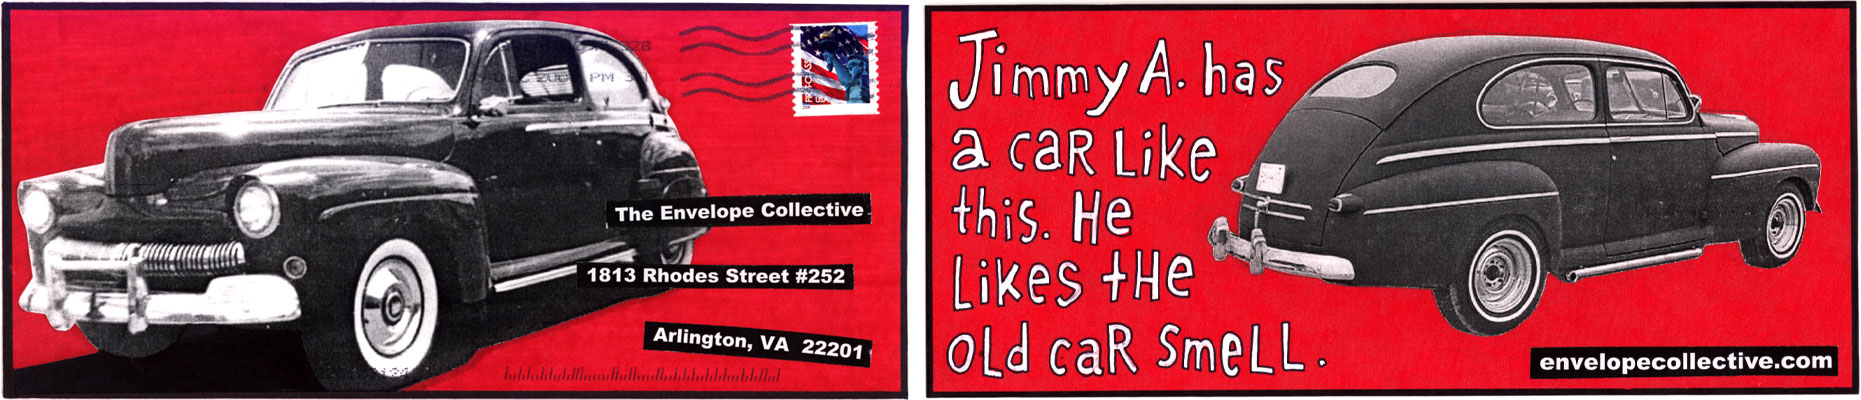 The Envelope Collective
1813 Rhodes Street #252
Arlington, VA 22201
Jimmy A. has
a caR Like
this. He
Likes tHe
old caR smeLL.
envelopecollective.com